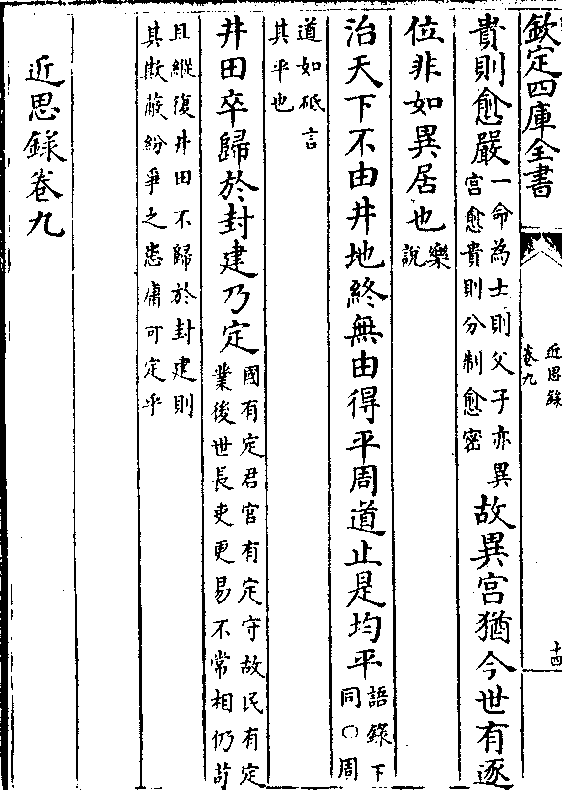 欽定四庫全書
近思錄
卷九
十四
貴則愈嚴一命為士則父子亦異宫愈貴則分制愈密故異宫猶今世有逐
位非如異居也樂說
治天下不由井地終無由得平周道止是均平語錄下同○周
道如砥言其平也
井田卒歸於封建乃定國有定君官有定守故民有定業後世長吏更易不常相仍苟
且縱復井田不歸於封建則其欺蔽紛爭之患庸可定乎
近思錄卷九